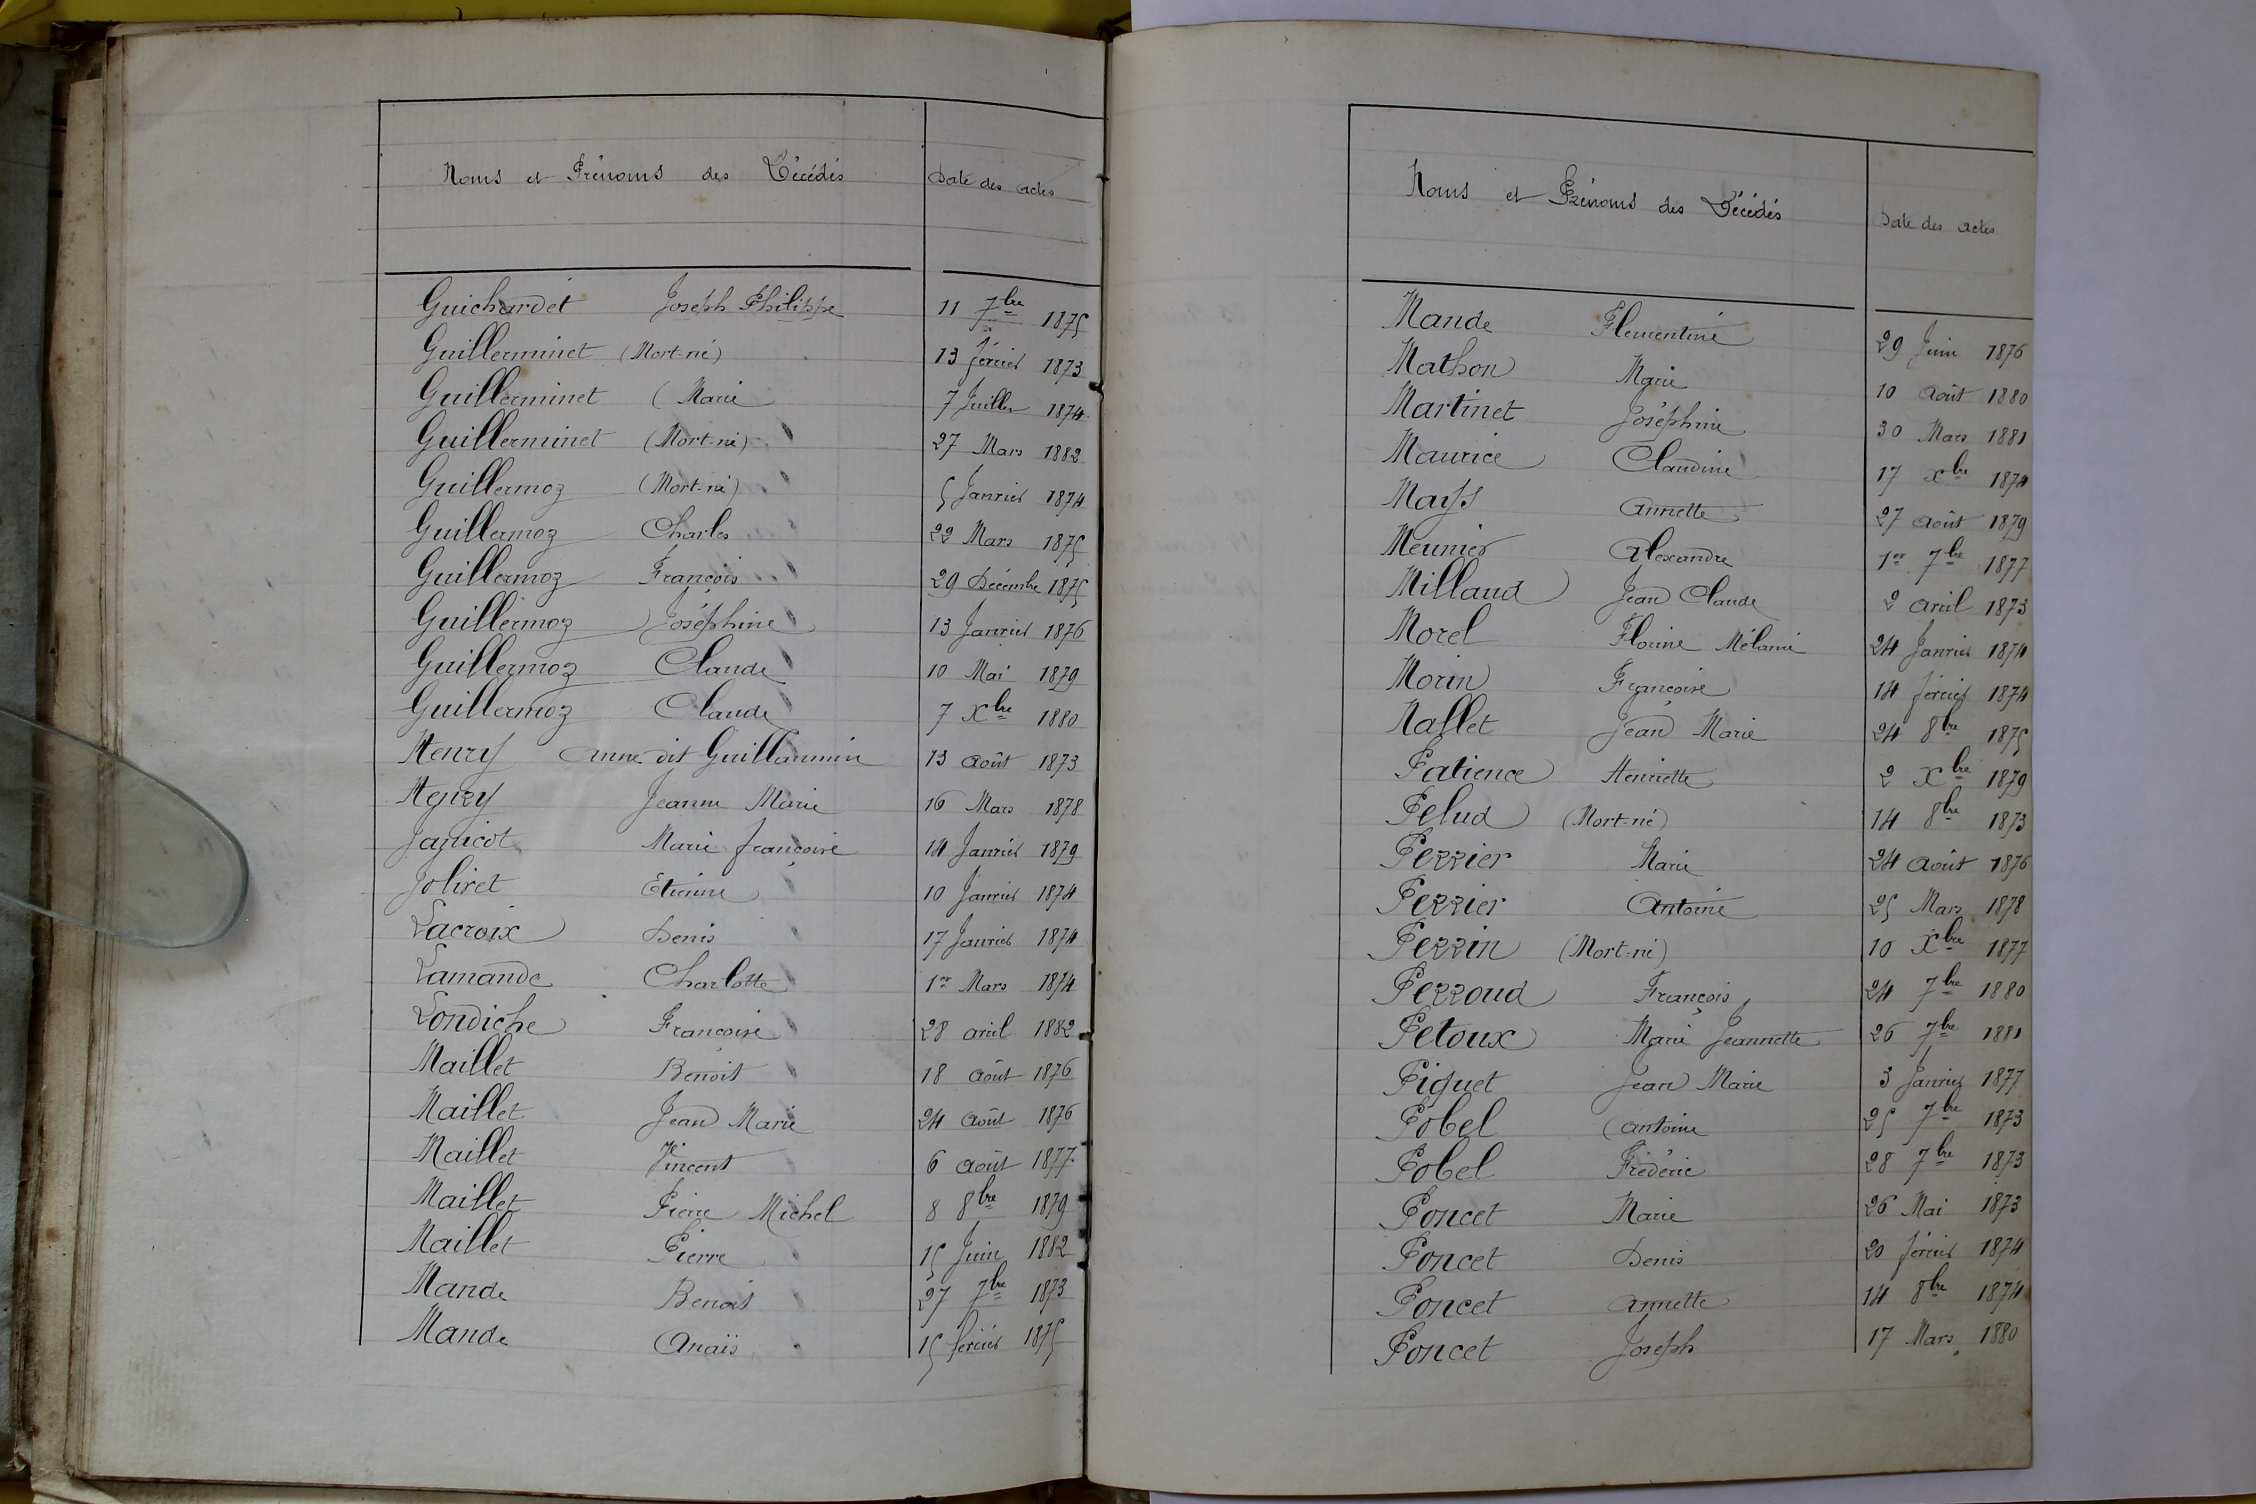 Noms et Prénoms des Décédés Date des actes
Guichardet Joseph Philippe 11 7bre 1875
Guillerminet (Mort-né) 13 février 1873
Guillerminet (Marie 7 Juillet 1874
Guillerminet (Mort-né) 27 Mars 1882
Guillermoz (Mort-né) 5 Janvier 1874
Guillermoz Charles 22 Mars 1875
Guillermoz François 29 Décembre 1875
Guillermoz Joséphine 13 Janvier 1876
Guillermoz Claude 10 Mai 1879
Guillermoz Claude 7 Xbre 1880
Henry Anne dit Guillaumin 13 août 1873
Henry Jeanne Marie 16 Mars 1878
Janicot Marie françoise 14 Janvier 1879
Joliret Etienne 10 Janvier 1874
Lacroix Denis 17 Janvier 1874
Lamande Charlotte 1er Mars 1874
Londiche Françoise 28 avril 1882
Maillet Benoit 18 août 1876
Maillet Jean Marie 24 août 1876
Maillet Vincent 6 août 1877
Maillet Pierre Michel 8 8bre 1879
Maillet Pierre 15 Juin 1882
Mande Benoit 27 7bre 1873
Mande Anaïs 15 février 1875
Noms et Prénoms des Décédés Date des actes
Mande Flementine 29 Juin 1876
Mathon Marie 10 août 1880
Martinet Joséphine 30 Mars 1881
Maurice Claudine 17 xbre 1874
Mayss Annette 27 août 1879
Meunier Alexandre 1er 7bre 1877
Millaud Jean Claude 2 avril 1873
Morel Florine Mélanie 24 Janvier 1874
Morin Françoise 14 février 1874
Nallet Jean Marie 24 8bre 1875
Patience Henriette 2 Xbre 1879
Pelud (Mort-né) 14 8bre 1873
Perrier Marie 24 août 1876
Perrier Antoine 25 Mars 1878
Perrin (Mort-né) 10 Xbre 1877
Perroud François 24 7bre 1880
Petoux Marie Jeannette 26 7bre 1881
Piquet Jean Marie 3 Janvier 1877
Pobel Antoine 25 7bre 1873
Pobel Frédéric 28 7bre 1873
Poncet Marie 26 Mai 1873
Poncet Denis 20 février 1874
Poncet Annette 14 8bre 1874
Poncet Joseph 17 Mars 1880